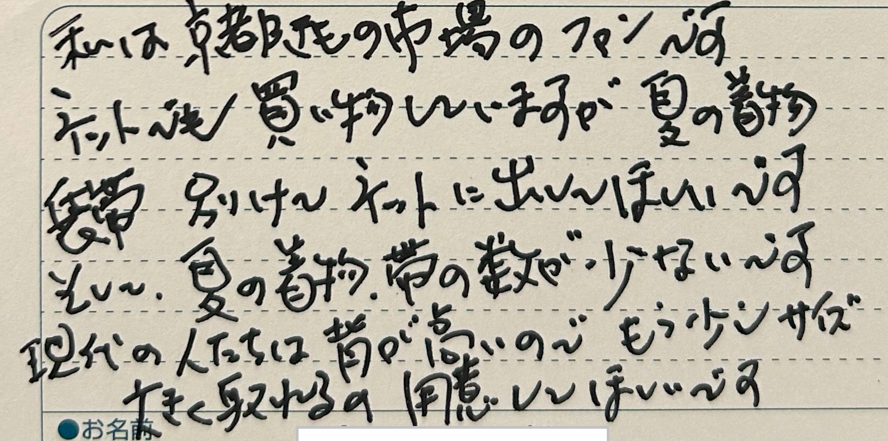 私は京都 の市場のファンです
ネットでも買い物していますが 夏の着物
袋帯 別けて ネットに出してほしいです
そして、夏の着物、帯の数が少ないです
現代の人たちは背が高いので もう少しサイズ
大きく取れるの 用意してほしいです
●お名前